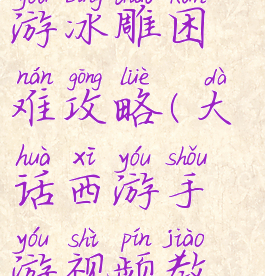 yóu bīng diāo kùn
游冰雕困
nán gōng lüè dà
难攻略(大
huà xī yóu shǒu
话西游手
yóu shì pín jiào
游视频教